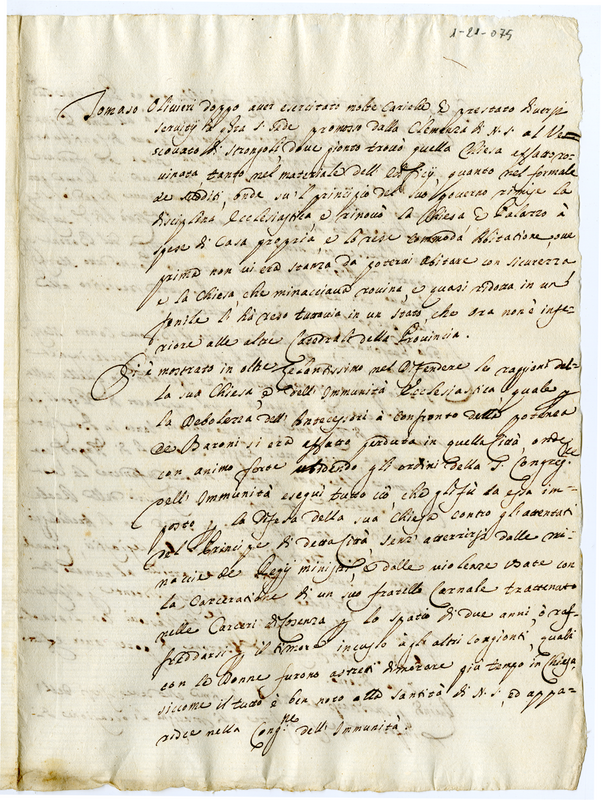 1-21-075
Tomaso Olivieri doppo aver esercitato molte Cariche e prestato diversi
servitij à sta S. Sede promosso dalla Clemenza di N. S. al Ve=
scovato di Strongoli, dove gionto trovò quella Chiesa affatto ro=
vinata tanto nel materiale dell' Edificij quanto nel formale
de sudditi, onde su'l principio del suo governo rimise la
disciplina Ecclesiastica e rinovò la Chiesa e Palazzo à
spese di Casa propria e lo rese commoda abitatione, ove
prima non vi era stanza da potervi abitare con sicurezza
e la Chiesa che minacciava rovina e quasi ridotta in un
fenile l' hà reso tuttavia in un stato, che ora non è infe=
riore alle altre Catedrali della Provincia.
Si è mostrato in oltre zelantissimo nel difendere le raggioni del=
la sua Chiesa e dell' Immunità Ecclesiastica quale p
la debolezza dell' Antecessori à confronto della potenza
de Baroni si era affatto perduta in quella Città, onde
con animo forte ubidendo gli ordini della S. Congreg.
dell' Immunità eseguì tutto ciò che gli fù da essa im=
posto p la difesa della sua Chiesa contro gl' attentati
del Principe di detta Città senz' atterrirsi dalle mi=
naccie de Reggij ministri e dalle violenze usate con
la Carceratione di un suo fratello Carnale trattenuto
nelle Carceri di Cosenza p lo spatio di due anni ò raf=
freddarsi p il timore incusso agli altri congionti, quali
con le Donne furono astretti dimorare più tempo in Chiesa
siccome il tutto è ben noto alla Santità di N. S. ed appa=
risce nella Cong.ne dell' Immunità.